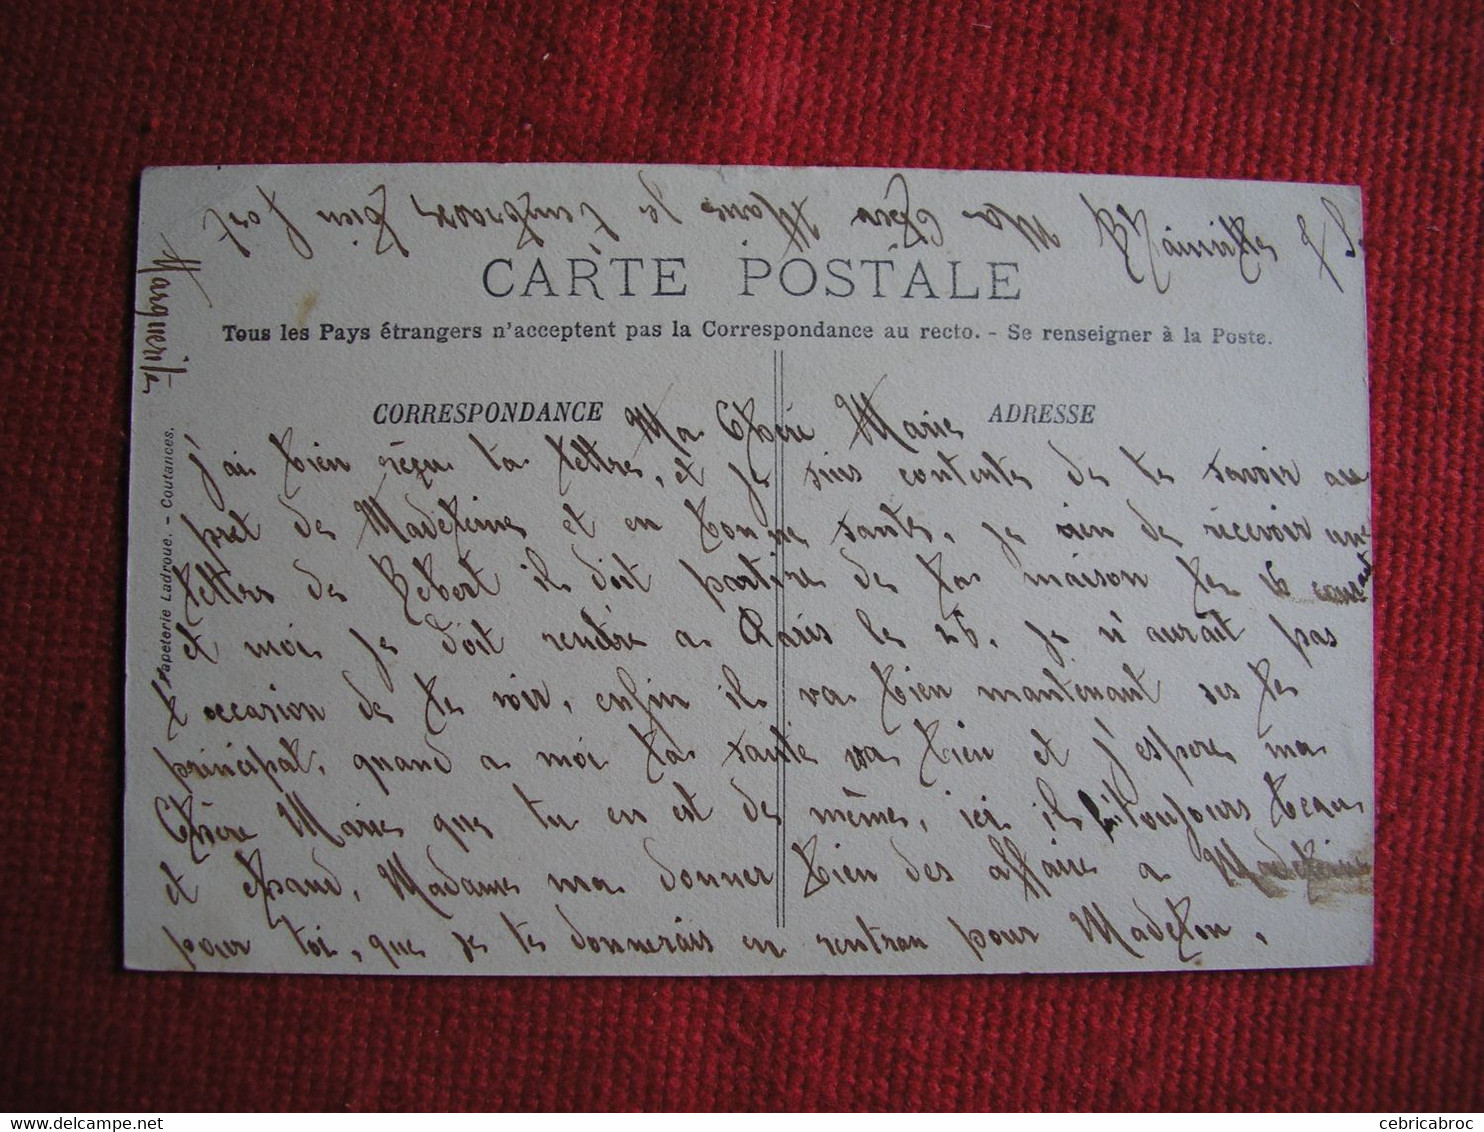 CARTE POSTALE
Tous les Pays étrangers n'acceptent pas la Correspondance au recto. - Se renseigner à la Poste.
CORRESPONDANCE
ADRESSE
Papeterie Ladroue. - Coutances.
Ma Chère Marie
j'ai bien reçu ta lettre, et je suis contente de te savoir au
pret de Madeleine et en bonne sante, je vien de recevoir une
lettre de Robert il doit partire de la maison le 16 courant
et moi je doit rendre a Paris le 26. je n'aurait pas
l'occasion de le voir, enfin il va bien mantenant ses le
principal, quand a moi la sante va bien et j'espere ma
Chère Marie que tu en est de même, ici il fait toujours beau
et chaud, Madame ma donner bien des affaire a Madeleine
pour toi, que je te donnerais en rentran pour Madelon,
Ma Chère Marie je t'embrasse bien fort
Marguerite